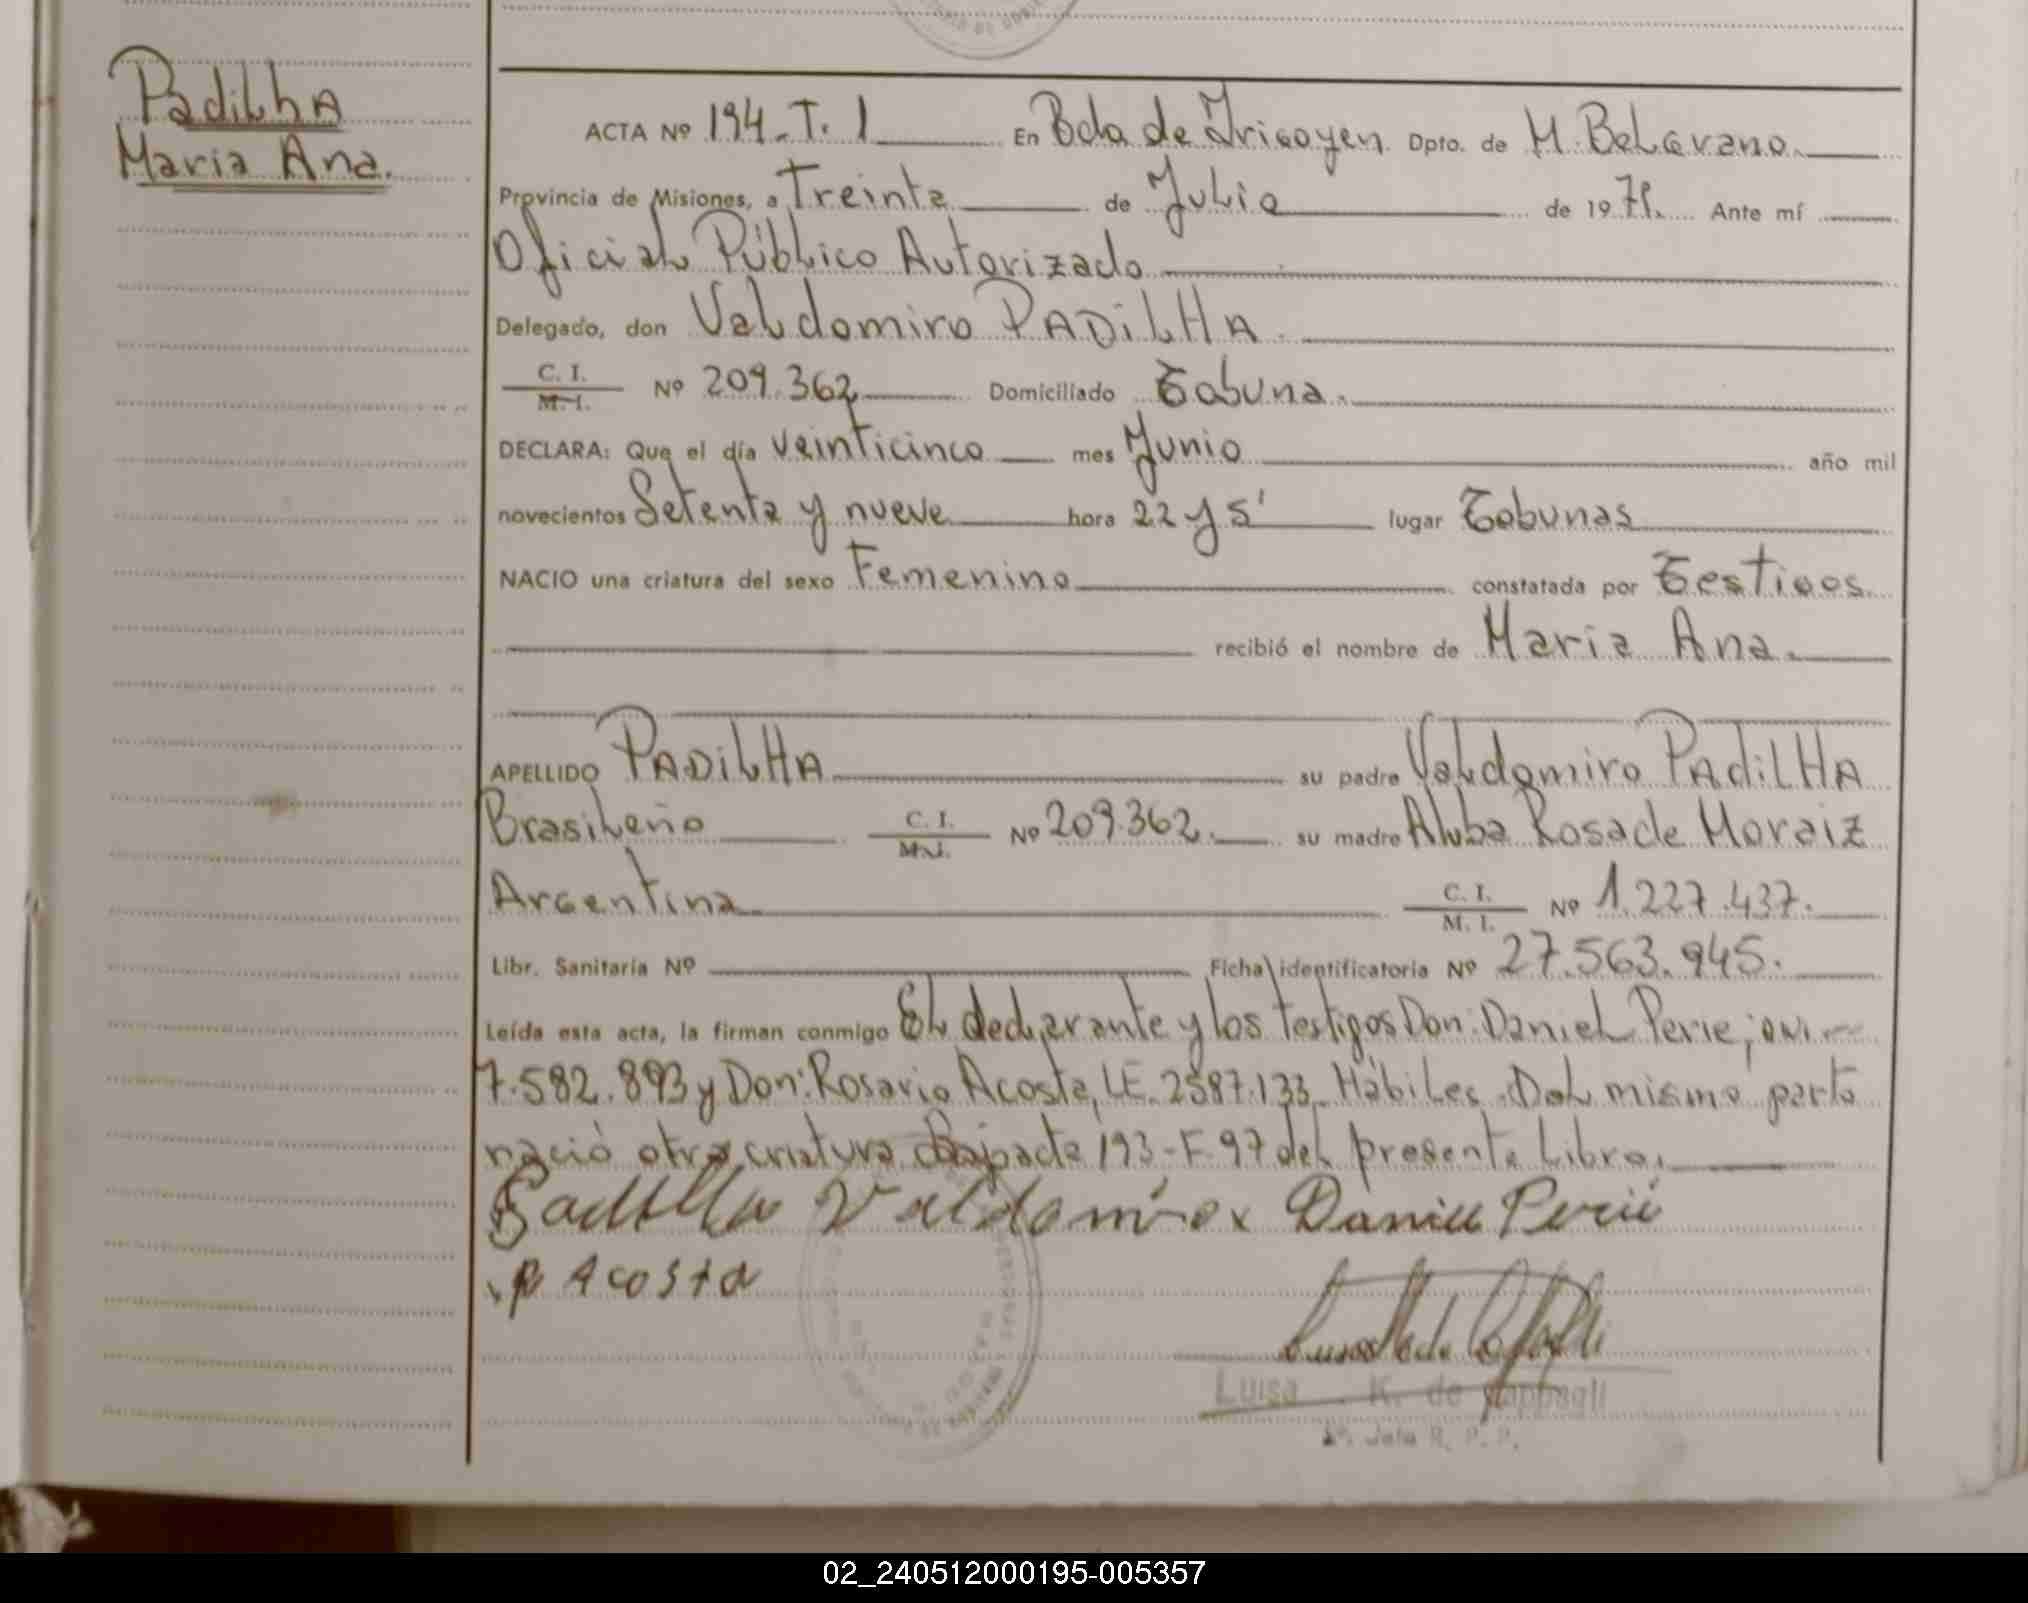 PadiLhA
Maria Ana.
ACTA Nº 194-T. 1 En Bdo de Irigoyen. Dpto. de M. BeLgrano.
Provincia de Misiones, a Treinta de JuLio de 1979. Ante mí
OficiaL PúbLico Autorizado
Delegado, don VaLdomiro PADiLHA.
C. I.
M. I. Nº 209.362 Domiciliado Tobuna.
DECLARA: Que el día veinticinco mes Junio año mil
novecientos Setenta y nueve hora 22 y 5' lugar Tobunas
NACIO una criatura del sexo Femenino constatada por Testigos
recibió el nombre de Maria Ana.
APELLIDO PADiLHA su padre VaLdomiro PAdiLHA
BrasiLeño C. I.
M. I. Nº 209.362. su madre ALba Rosa de Moraiz
Argentina C. I.
M. I. Nº 1.227.437.
Libr. Sanitaria Nº Ficha identificatoria Nº 27.563.945.
Leída esta acta, la firman conmigo EL decLarante y los testigos Don: DanieL Perie; DNI
7.582.893 y Don: Rosario Acosta, LE. 2587.133. HábiLes. DeL mismo parto
nació otra criatura Bajo acta 193-F. 97 deL presente Libro.
Padilha Valdomiro x Daniel Perié
R Acosta
Luisa K. de Cappagli
Jefa R. P. P.
02_240512000195-005357